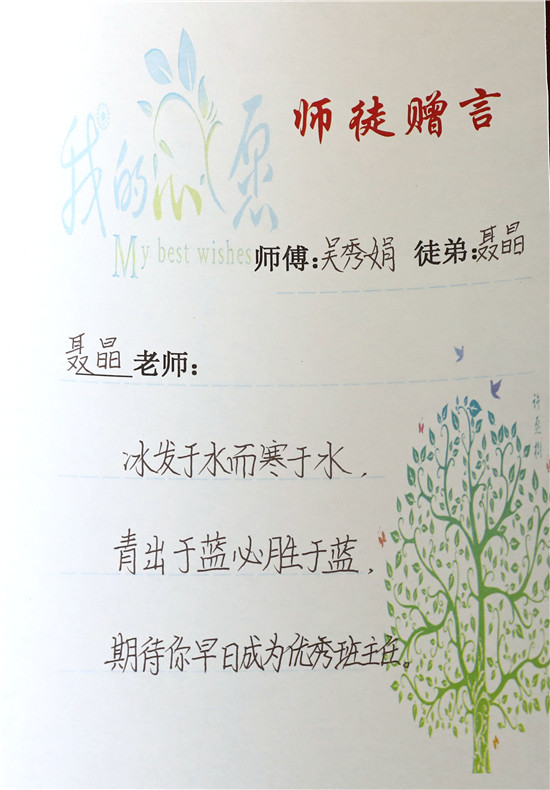 师徒赠言
我的心愿
My best wishes
师傅：吴秀娟 徒弟：聂晶
聂晶 老师：
许愿树
冰发于水而寒于水，
青出于蓝必胜于蓝，
期待你早日成为优秀班主任。